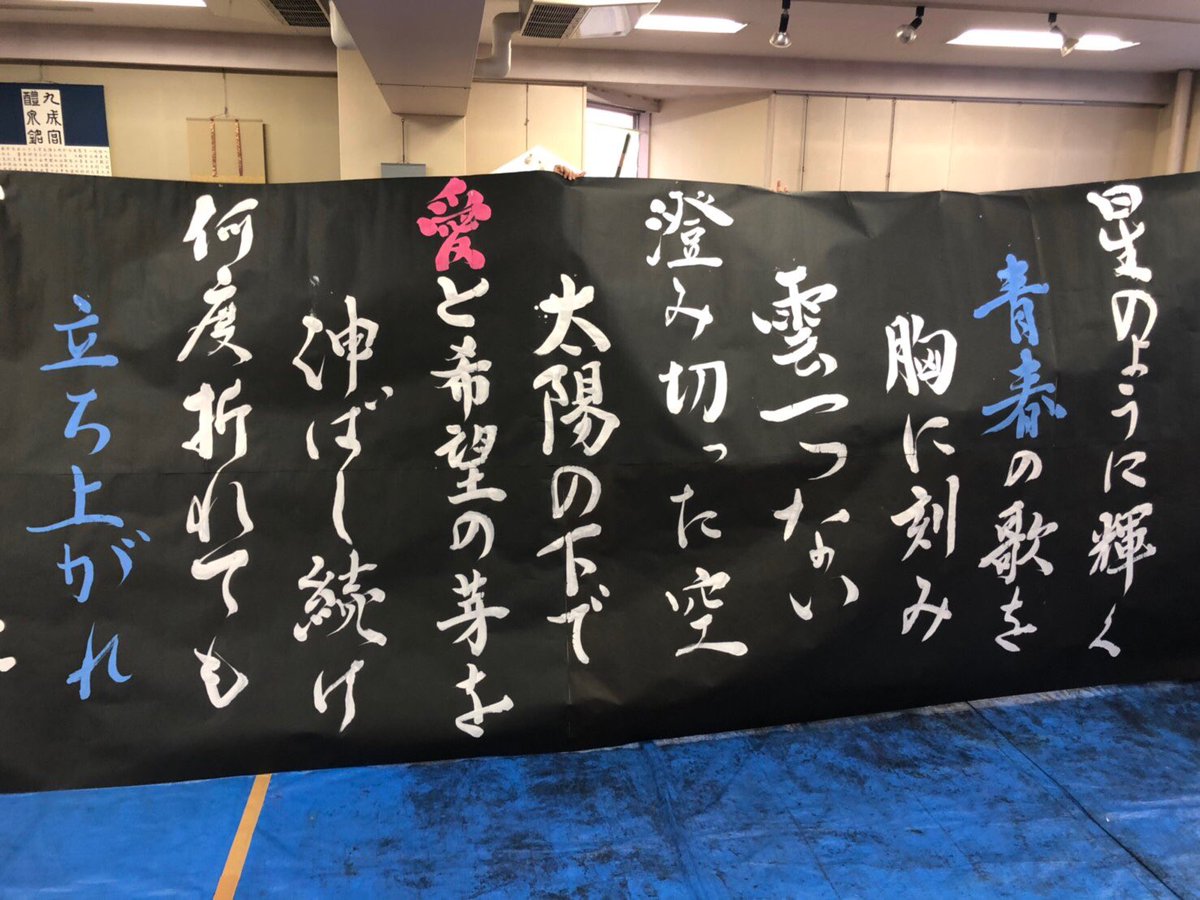 星のように輝く
青春の歌を
胸に刻み
雲一つない
澄み切った空
太陽の下で
愛と希望の芽を
伸ばし続け
何度折れても
立ち上がれ
九成宮
醴泉銘